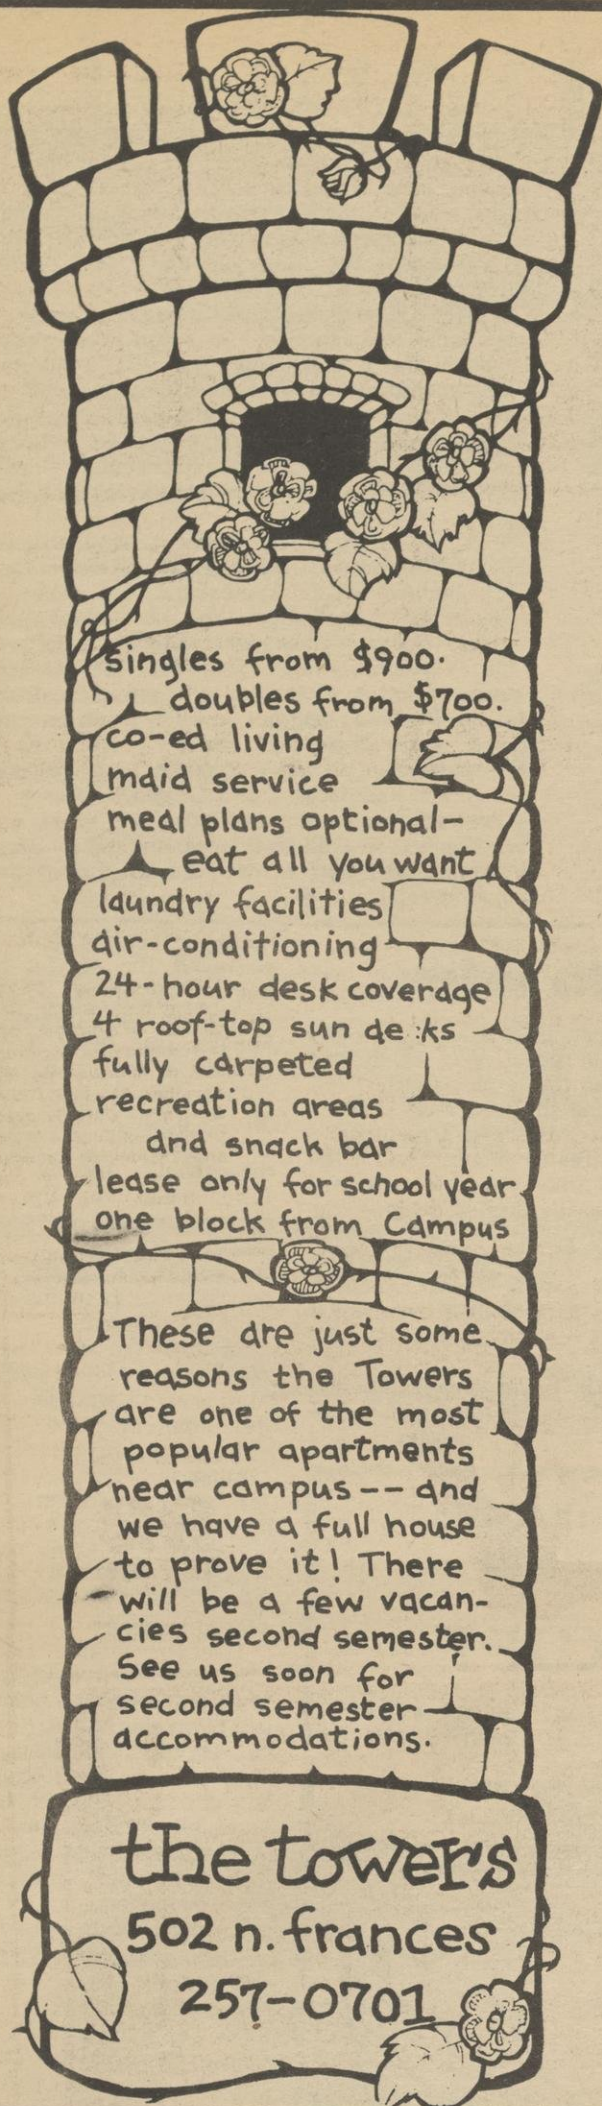 singles from $900.
doubles from $700.
co-ed living
maid service
meal plans optional-
eat all you want
laundry facilities
air-conditioning
24-hour desk coverage
4 roof-top sun de ks
fully carpeted
recreation areas
and snack bar
lease only for school year
one block from Campus
These are just some
reasons the Towers
are one of the most
popular apartments
near campus -- and
we have a full house
to prove it! There
will be a few vacan-
cies second semester.
See us soon for
second semester
accommodations.
the towers
502 n. frances
257-0701